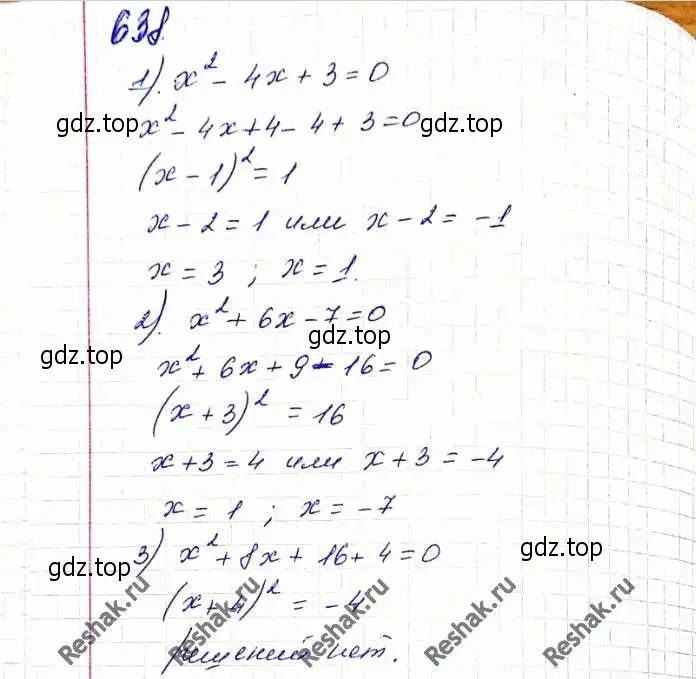 638.
1). x² - 4x + 3 = 0
x² - 4x + 4 - 4 + 3 = 0
gdz.top
gdz.top
(x - 1)² = 1
x - 2 = 1 или x - 2 = -1
x = 3 ; x = 1.
2). x² + 6x - 7 = 0
gdz.top
gdz.top
x² + 6x + 9 - 16 = 0
(x + 3)² = 16
x + 3 = 4 или x + 3 = -4
x = 1 ; x = -7
3) x² + 8x + 16 + 4 = 0
gdz.top
gdz.top
(x + 4)² = -4
Решений нет.
Reshak.ru
Reshak.ru
Reshak.ru
Reshak.ru